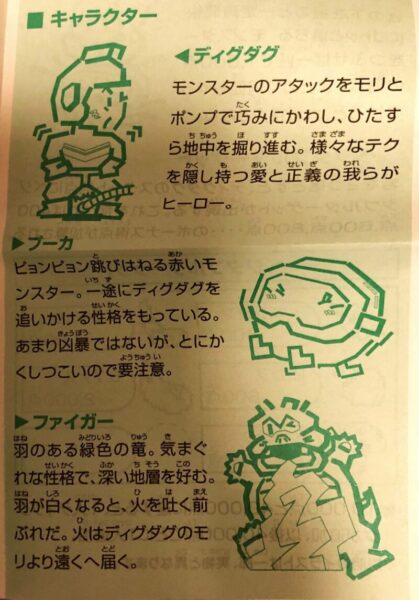 ■ キャラクター
◀ディグダグ
モンスターのアタックをモリと
ポンプで巧みにかわし、ひたす
ら地中を掘り進む。様々なテク
を隠し持つ愛と正義の我らが
ヒーロー。
▶プーカ
ピョンピョン跳びはねる赤いモ
ンスター。一途にディグダグを
追いかける性格をもっている。
あまり凶暴ではないが、とにか
くしつこいので要注意。
▶ファイガー
羽のある緑色の竜。気まぐ
れな性格で、深い地層を好む。
羽が白くなると、火を吐く前
ぶれだ。火はディグダグのモ
リより遠くへ届く。